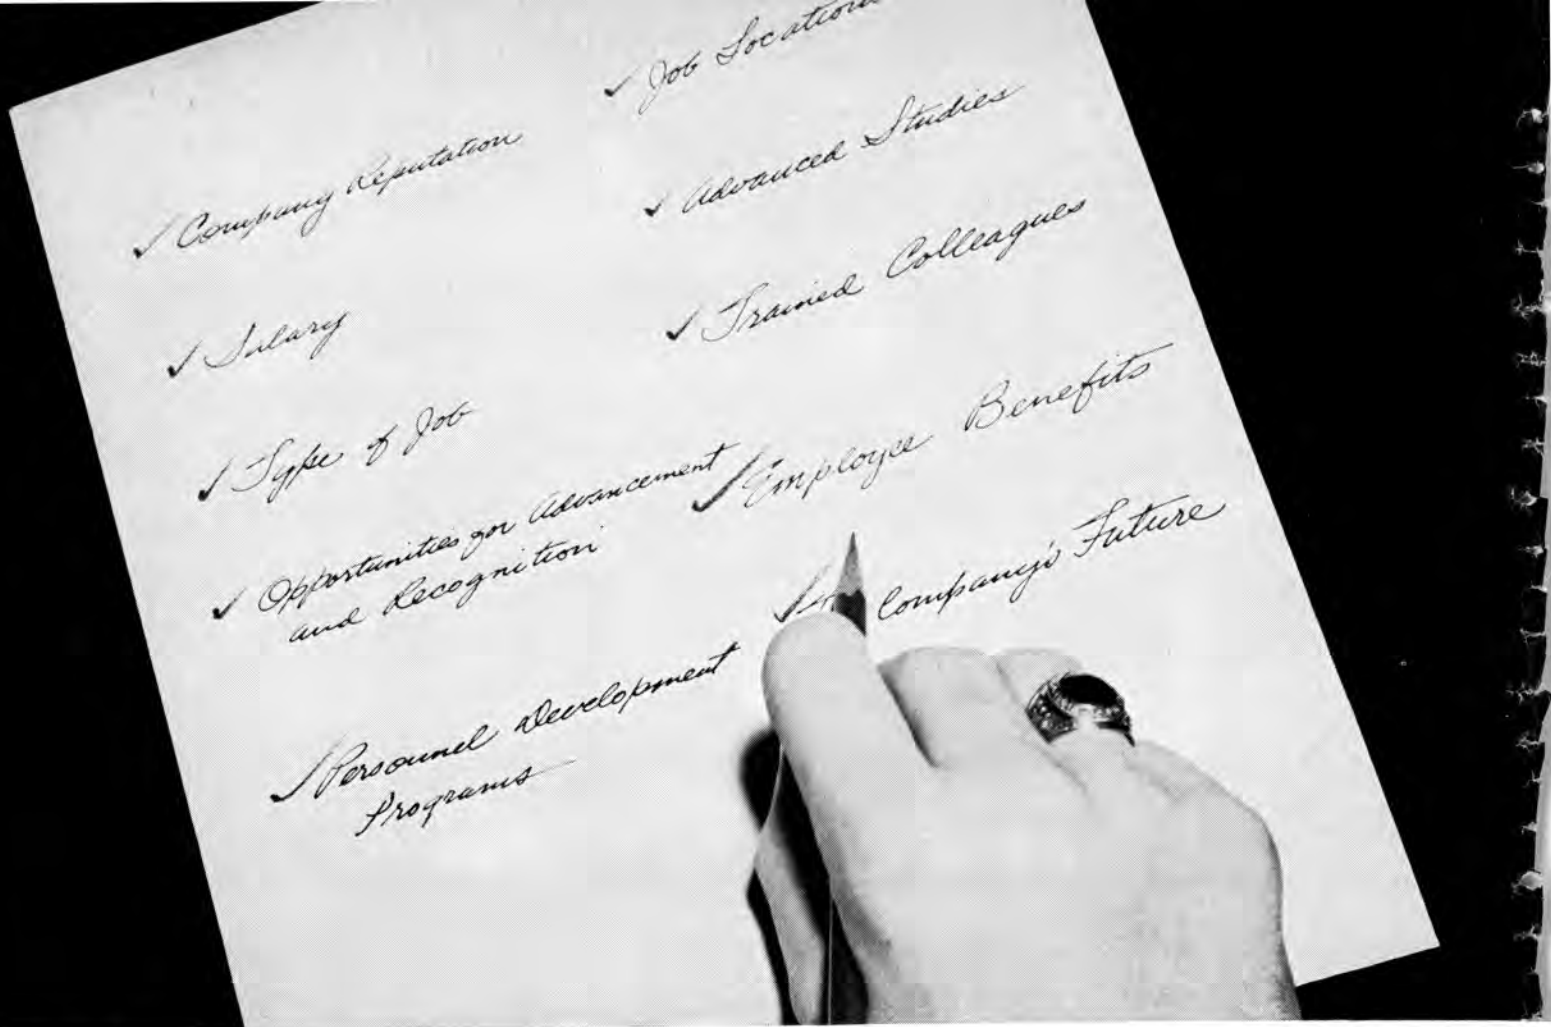 ✓ Company Reputation
✓ Salary
✓ Type of Job
✓ Opportunities for Advancement
and Recognition
✓ Personnel Development
Programs
✓ Job Location
✓ Advanced Studies
✓ Trained Colleagues
✓ Employee Benefits
✓ Company's Future